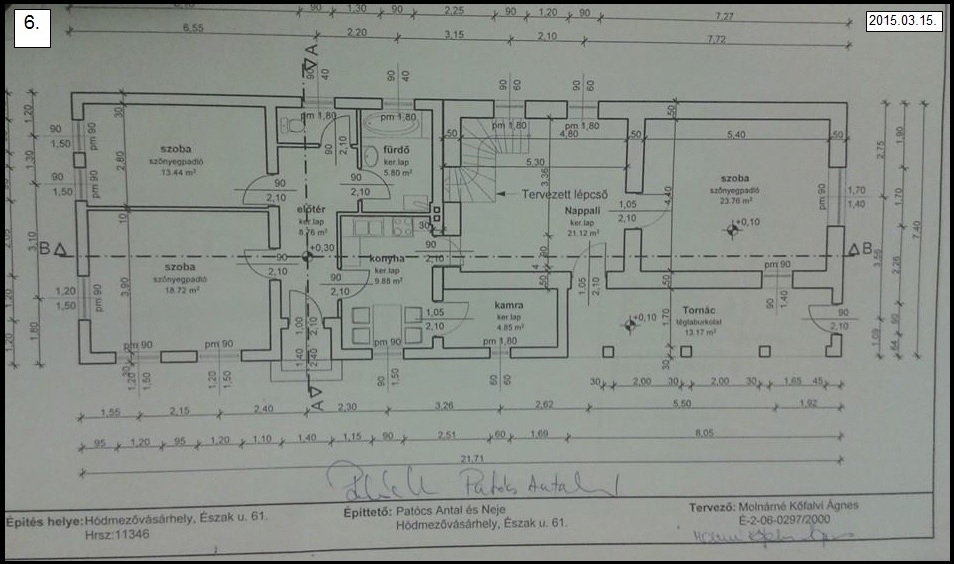 6.
2015.03.15.
1,30
90
2,25
90
1,20
90
7,27
6,55
2,20
3,15
2,10
7,72
A
90 40
90 40
90 60
90 60
pm 1,80
pm 1,80
pm 1,80
pm 1,80
50
4,80
50
5,40
50
1,20
90
1,50
pm 90
30
szoba
szőnyegpadló
13.44 m²
2,80
90
2,10
fürdő
ker.lap
5.80 m²
5,30
3,36
Tervezett lépcső
szoba
szőnyegpadló
23.76 m²
+0,10
4,40
pm 90
1,70
1,40
2,75
1,90
1,30
90
1,50
pm 90
90
2,10
90
2,10
előtér
ker.lap
8.76 m²
+0,30
Nappali
ker.lap
21.12 m²
1,05
2,10
1,70
7,40
3,10
10
30
B
B
szoba
szőnyegpadló
18.72 m²
3,90
90
2,10
konyha
ker.lap
9.88 m²
90
2,10
90
2,10
pm 90
90
1,40
3,56
2,26
1,20
1,50
pm 90
1,80
1,00
2,10
1,40
2,40
1,05
2,10
kamra
ker.lap
4.85 m²
1,05
2,10
+0,10
1,70
Tornác
téglaburkolat
13.17 m²
90
2,10
1,09
64
90
pm 90
pm 90
pm 90
pm 1,80
30
1,20
1,50
1,20
1,50
A
90
1,50
60
60
30
2,00
30
2,00
30
1,65
45
1,55
2,15
2,40
2,30
3,26
2,62
5,50
1,92
95
1,20
95
1,20
1,10
1,40
1,15
90
2,51
60
1,69
8,05
21,71
Patócs Antal
Építés helye: Hódmezővásárhely, Észak u. 61.
Hrsz:11346
Építtető: Patócs Antal és Neje
Hódmezővásárhely, Észak u. 61.
Tervező: Molnárné Kőfalvi Ágnes
É-2-06-0297/2000